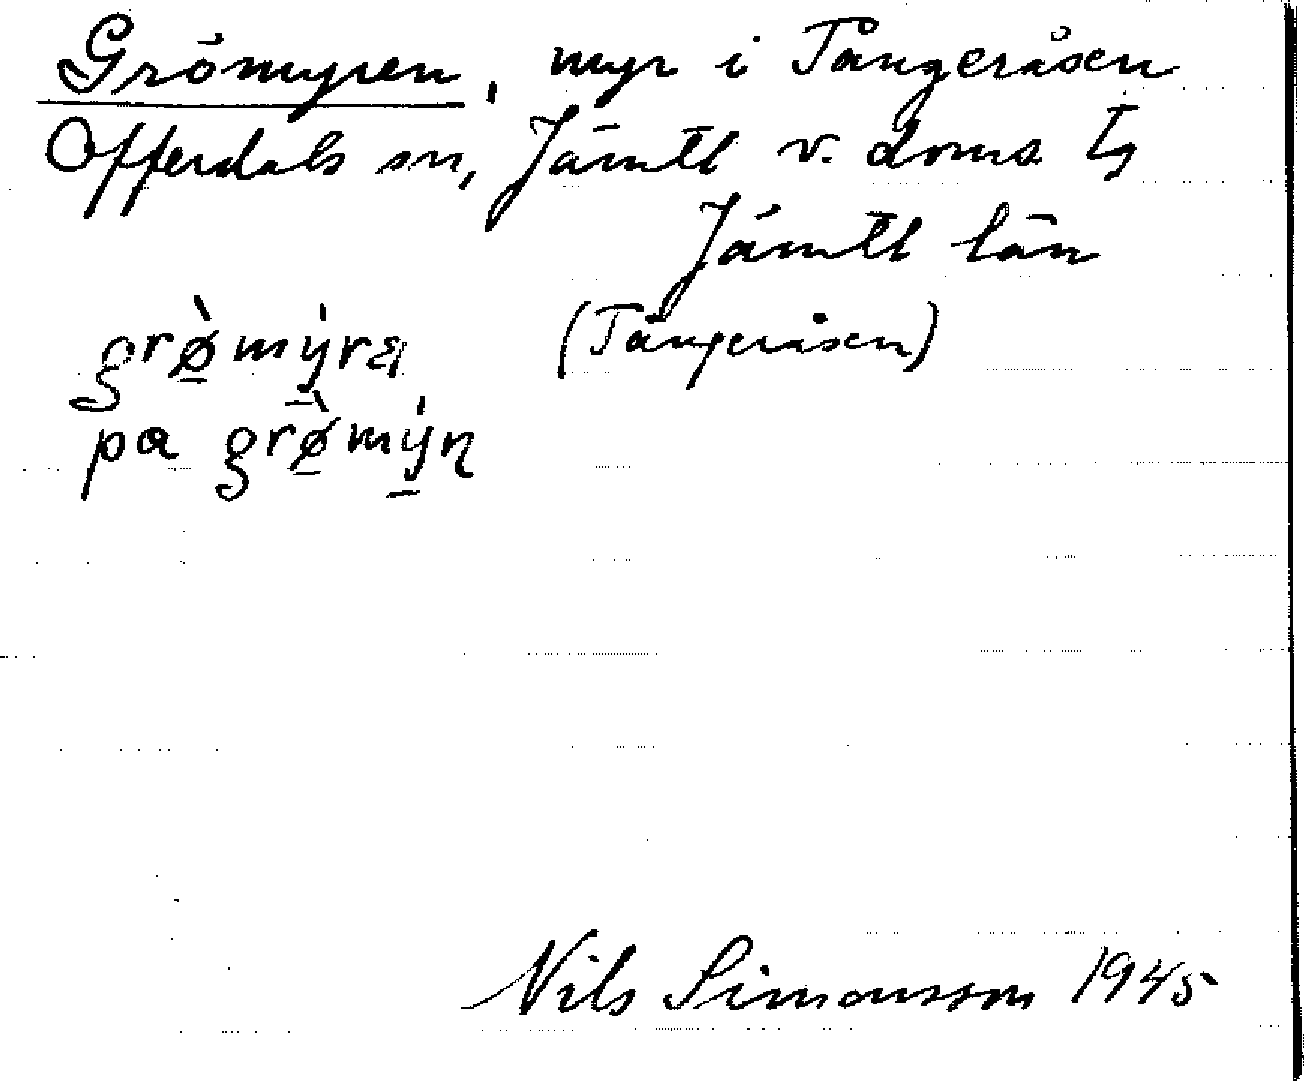 Grömyren, myr i Tångeråsen
Offerdals sn, Jämtl v. doms tg
Jämtl län
grø̠̀mý̠ra (Tångeråsen)
pa grø̠̀mý̠ɳ
Nils Simonsson 1945